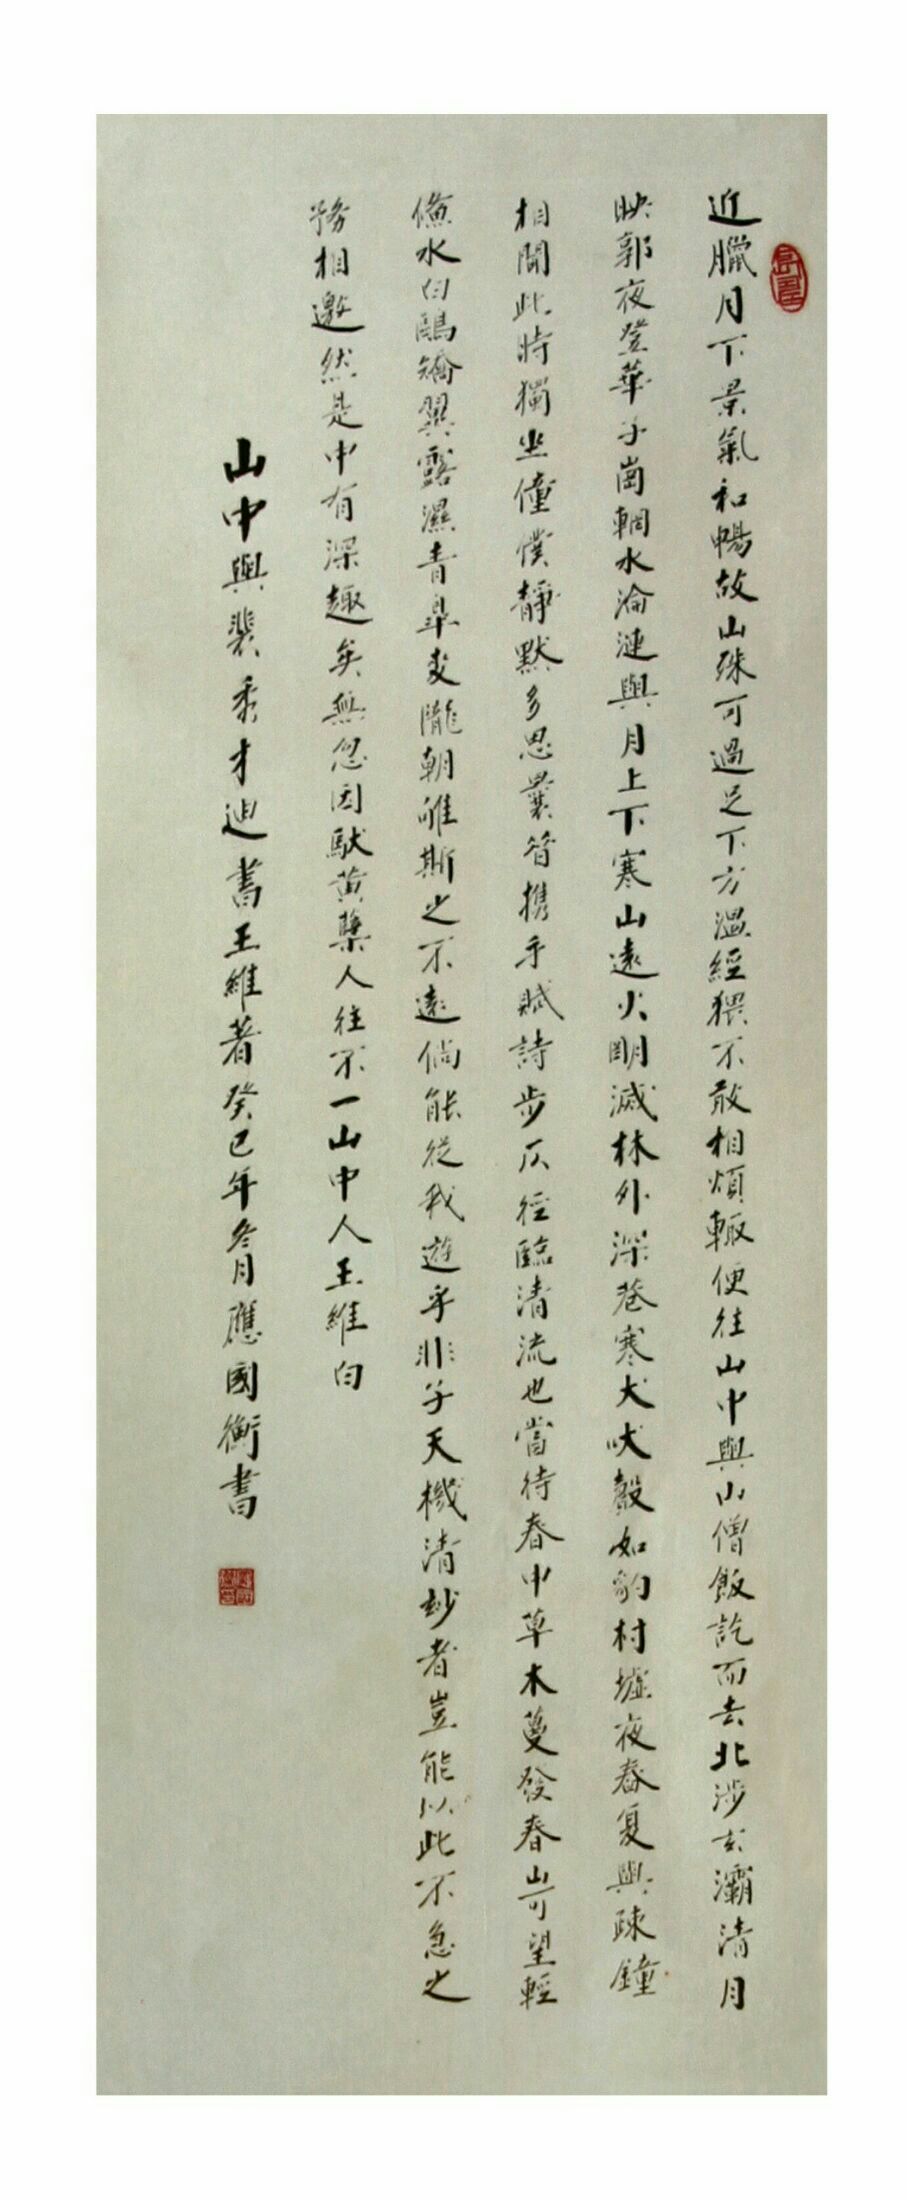 近臘月下景氣和暢故山殊可過足下方溫經猥不敢相煩輒便往山中與山僧飯訖而去北涉玄灞清月
映郭夜登華子崗輞水淪漣與月上下寒山遠火明滅林外深巷寒犬吠聲如豹村墟夜舂復與疎鐘
相聞此時獨坐僮僕靜默多思曩昔攜手賦詩步仄徑臨清流也當待春中草木蔓發春山可望輕
鯈水白鷗矯翼露濕青皋麥隴朝雊斯之不遠倘能從我遊乎非子天機清妙者豈能以此不急之
務相邀然是中有深趣矣無忽因馱黃檗人往不一山中人王維白
山中與裴秀才迪書王維著癸巳年冬月應國衡書